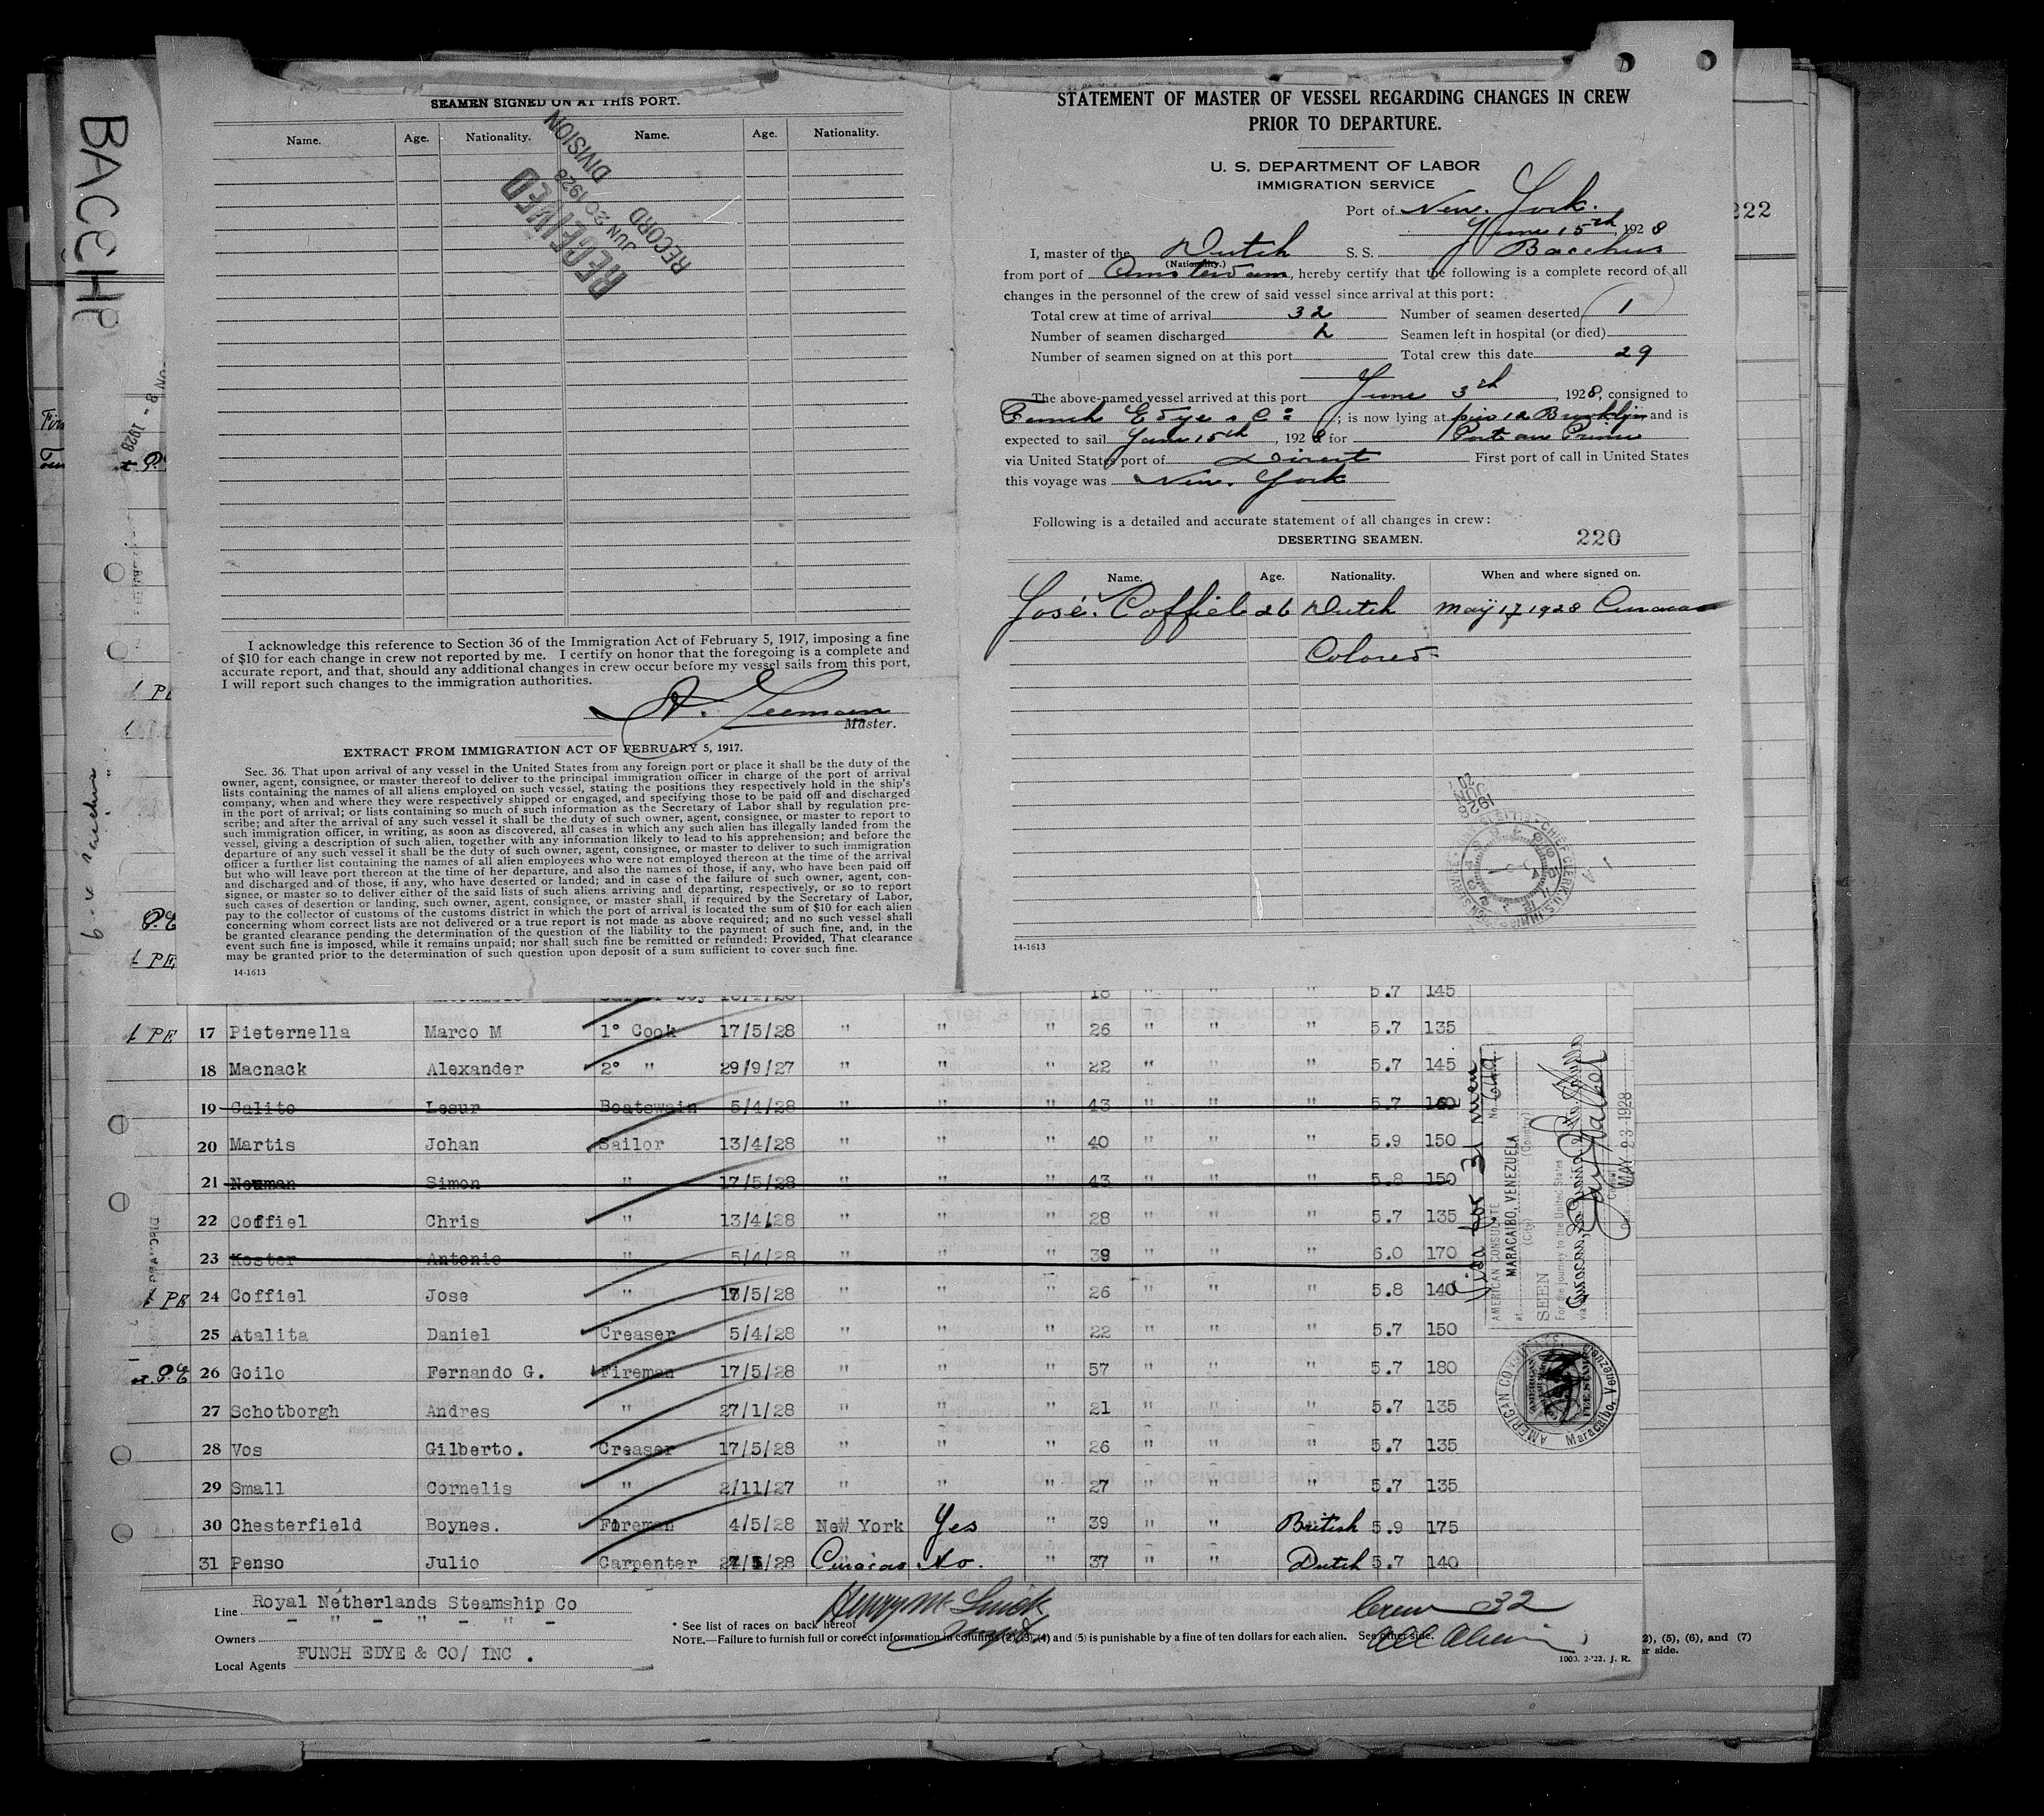 BACCHP
SEAMEN SIGNED ON AT THIS PORT.
Name. Age. Nationality. Name. Age. Nationality.
RECEIVED
JUN 20 1928
RECORD
DIVISION
I acknowledge this reference to Section 36 of the Immigration Act of February 5, 1917, imposing a fine
of $10 for each change in crew not reported by me. I certify on honor that the foregoing is a complete and
accurate report, and that, should any additional changes in crew occur before my vessel sails from this port,
I will report such changes to the immigration authorities.
Master.
EXTRACT FROM IMMIGRATION ACT OF FEBRUARY 5, 1917.
Sec. 36. That upon arrival of any vessel in the United States from any foreign port or place it shall be the duty of the
owner, agent, consignee, or master thereof to deliver to the principal immigration officer in charge of the port of arrival
lists containing the names of all aliens employed on such vessel, stating the positions they respectively hold in the ship's
company, when and where they were respectively shipped or engaged, and specifying those to be paid off and discharged
in the port of arrival; or lists containing so much of such information as the Secretary of Labor shall by regulation pre-
scribe; and after the arrival of any such vessel it shall be the duty of such owner, agent, consignee, or master to report to
such immigration officer, in writing, as soon as discovered, all cases in which any such alien has illegally landed from the
vessel, giving a description of such alien, together with any information likely to lead to his apprehension; and before the
departure of any such vessel it shall be the duty of such owner, agent, consignee, or master to deliver to such immigration
officer a further list containing the names of all alien employees who were not employed thereon at the time of the arrival
but who will leave port thereon at the time of her departure, and also the names of those, if any, who have been paid off
and discharged and of those, if any, who have deserted or landed; and in case of the failure of such owner, agent, con-
signee, or master so to deliver either of the said lists of such aliens arriving and departing, respectively, or so to report
such cases of desertion or landing, such owner, agent, consignee, or master shall, if required by the Secretary of Labor,
pay to the collector of customs of the customs district in which the port of arrival is located the sum of $10 for each alien
concerning whom correct lists are not delivered or a true report is not made as above required; and no such vessel shall
be granted clearance pending the determination of the question of the liability to the payment of such fine, and, in the
event such fine is imposed, while it remains unpaid; nor shall such fine be remitted or refunded: Provided, That clearance
may be granted prior to the determination of such question upon deposit of a sum sufficient to cover such fine.
14-1613
STATEMENT OF MASTER OF VESSEL REGARDING CHANGES IN CREW
PRIOR TO DEPARTURE.
U. S. DEPARTMENT OF LABOR
IMMIGRATION SERVICE
Port of New York.
June 15th, 1928
222
I, master of the Dutch S. S. Bacchus
(Nationality.)
from port of Amsterdam, hereby certify that the following is a complete record of all
changes in the personnel of the crew of said vessel since arrival at this port:
Total crew at time of arrival 32 Number of seamen deserted 1
Number of seamen discharged 2 Seamen left in hospital (or died)
Number of seamen signed on at this port Total crew this date 29
The above-named vessel arrived at this port June 3th, 1928, consigned to
Funch Edye & Co; is now lying at pier 12 Brooklijn and is
expected to sail June 15th, 1928 for Port au Prince
via United States port of Direct First port of call in United States
this voyage was New York
Following is a detailed and accurate statement of all changes in crew:
DESERTING SEAMEN. 220
Name. Age. Nationality. When and where signed on.
José Coffiel 26 Dutch Maij 17 1928 Curacao
Colored
JUN 20 1928
14-1613
18 " " " 5.7 145
1 PE 17 Pieternella Marco M 1° Cook 17/5/28 " " " 26 " " " 5.7 135
18 Macnack Alexander 2° " 29/9/27 " " " 22 " " " 5.7 145
19 Calito Lesur Boatswain 5/4/28 " " " 43 " " " 5.7 160
20 Martis Johan Sailor 13/4/28 " " " 40 " " " 5.9 150
21 Neuman Simon " 17/5/28 " " " 43 " " " 5.8 150
22 Coffiel Chris " 13/4/28 " " " 28 " " " 5.7 135
23 Koster Antonie " 5/4/28 " " " 39 " " " 6.0 170
1 PE 24 Coffiel Jose " 17/5/28 " " " 26 " " " 5.8 140
25 Atalita Daniel Creaser 5/4/28 " " " 22 " " " 5.7 150
26 Goilo Fernando G. Fireman 17/5/28 " " " 57 " " " 5.7 180
27 Schotborgh Andres " 27/1/28 " " " 21 " " " 5.7 135
28 Vos Gilberto. Creaser 17/5/28 " " " 26 " " " 5.7 135
29 Small Cornelis " 2/11/27 " " " 27 " " " 5.7 135
30 Chesterfield Boynes. Fireman 4/5/28 New York Yes " 39 " " British 5.9 175
31 Penso Julio Carpenter /5/28 Curacao No. " 37 " " Dutch 5.7 140
Visa for 31 men
AMERICAN CONSULATE
at MARACAIBO, VENEZUELA
(City) (Country)
SEEN
For the journey to the United States
via Curacao
Consul
Date MAY 23 1928
AMERICAN CONSULATE
Maracaibo, Venezuela
Line Royal Netherlands Steamship Co
Owners - " - " - " -
Local Agents FUNCH EDYE & CO/ INC .
* See list of races on back hereof
NOTE.—Failure to furnish full or correct information in columns (2), (3), (4) and (5) is punishable by a fine of ten dollars for each alien. See other side.
Crew 32
All Alien
1000. 2-'22. J. R.
2), (5), (6), and (7)
er side.